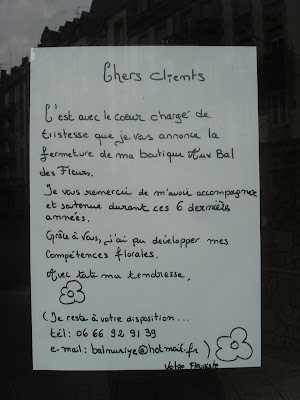 Chers clients
C'est avec le coeur chargé de
tristesse que je vous annonce la
fermeture de ma boutique Aux Bal
des Fleurs.
Je vous remercie de m'avoir accompagnée
et soutenue durant ces 6 dernières
années.
Grâce à Vous, j'ai pu développer mes
Compétences florales.
Avec toute ma tendresse,
(Je reste à votre disposition...
tél: 06 66 92 91 39
e-mail: balnuriye@hotmail.fr)
Votre Fleuriste